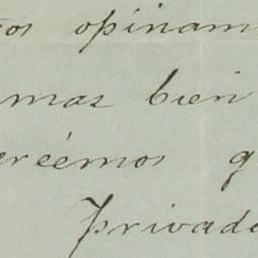 os opinam
mas bien
eréemos q
Privado